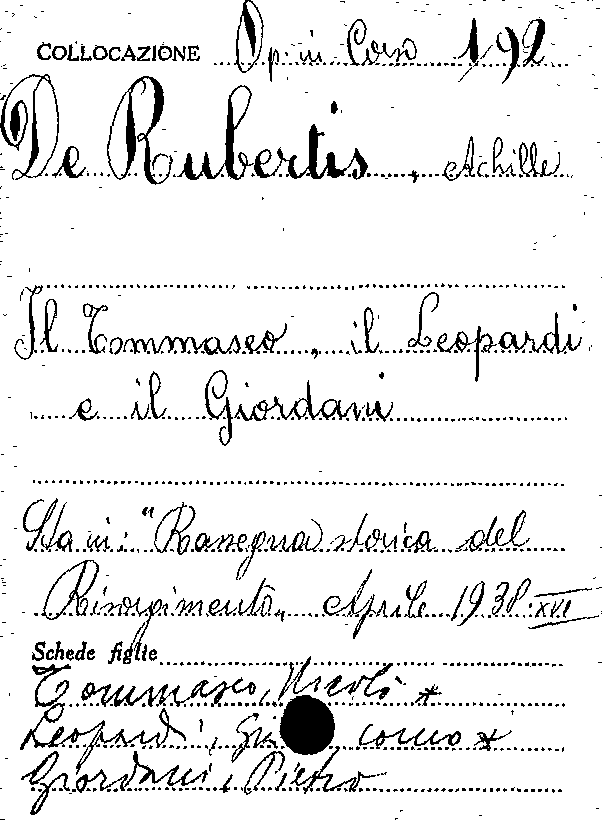 COLLOCAZIONE Op. in Corso 192
De Rubertis, Achille
Il Tommaseo, il Leopardi
e il Giordani
Sta in: "Rassegna storica del
Risorgimento" Aprile 1938-XVI
Schede figlie
Tommaseo, Nicolò *
Leopardi, Giacomo *
Giordani, Pietro